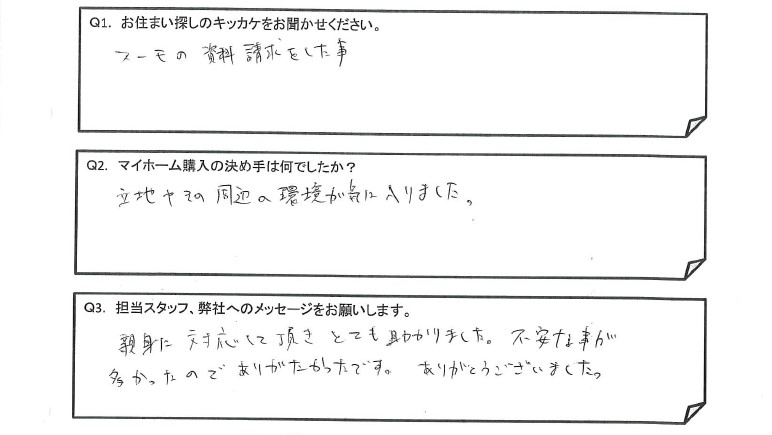 Q1. お住まい探しのキッカケをお聞かせください。
スーモの資料請求をした事
Q2. マイホーム購入の決め手は何でしたか？
立地やその周辺の環境が気に入りました。
Q3. 担当スタッフ、弊社へのメッセージをお願いします。
親身に対応して頂きとても助かりました。不安な事が
多かったのでありがたかったです。ありがとうございました。